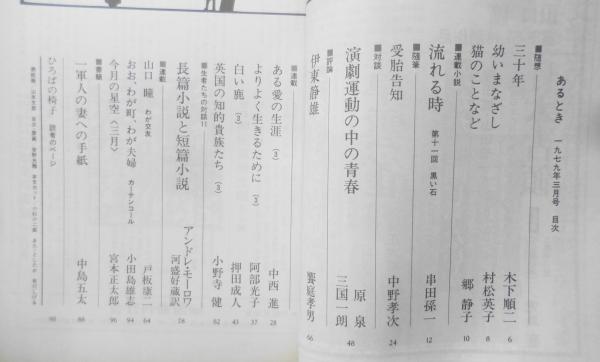 あるとき 一九七九年三月号 目次
■随想
三十年 木下順二 6
幼いまなざし 村松英子 8
猫のことなど 郷静子 10
■連載小説
流れる時 第十一回 黒い石 串田孫一 12
■随筆
受胎告知 中野孝次 24
■対談
演劇運動の中の青春 原泉 三国一朗 48
■評論
伊東静雄 饗庭孝男 66
■連載
ある愛の生涯〈3〉 中西進 28
よりよく生きるために〈3〉 阿部光子 37
白い鹿〈3〉 押田成人 43
英国の知的貴族たち〈3〉 小野寺健 62
■生者たちの対話11
長篇小説と短篇小説 アンドレ・モーロワ 河盛好蔵訳 78
■連載
山口瞳 わが交友 戸板康二 64
おお、わが町、わが夫婦 カーテンコール 小田島雄志 94
今月の星空〈三月〉 宮本正太郎 96
■書簡
一軍人の妻への手紙 中島五太 88
ひろばの椅子 読者のページ 98